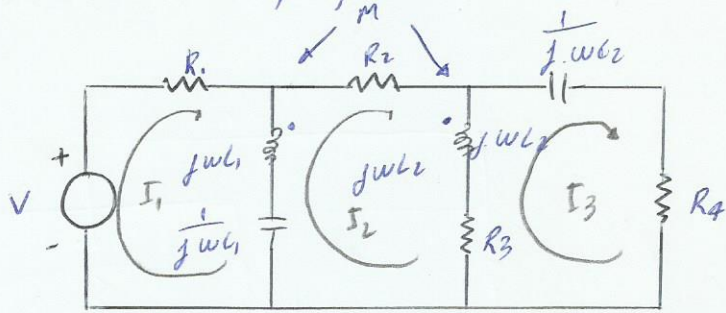 M
R1
R2
1
jωC2
+
V
-
I1
jωL1
1
jωC1
jωL2
I2
jωL2
R3
I3
R4